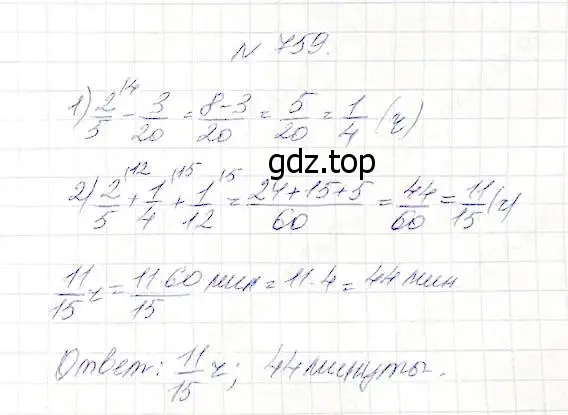 № 759.
1) 2/5 ⁽⁴ - 3/20 = 8-3/20 = 5/20 = 1/4 (ч)
gdz.top
2) 2/5 ⁽¹² + 1/4 ⁽¹⁵ + 1/12 ⁽⁵ = 24+15+5/60 = 44/60 = 11/15 (ч)
11/15 ч = 11·60/15 мин = 11·4 = 44 мин
Ответ: 11/15 ч; 44 минуты.